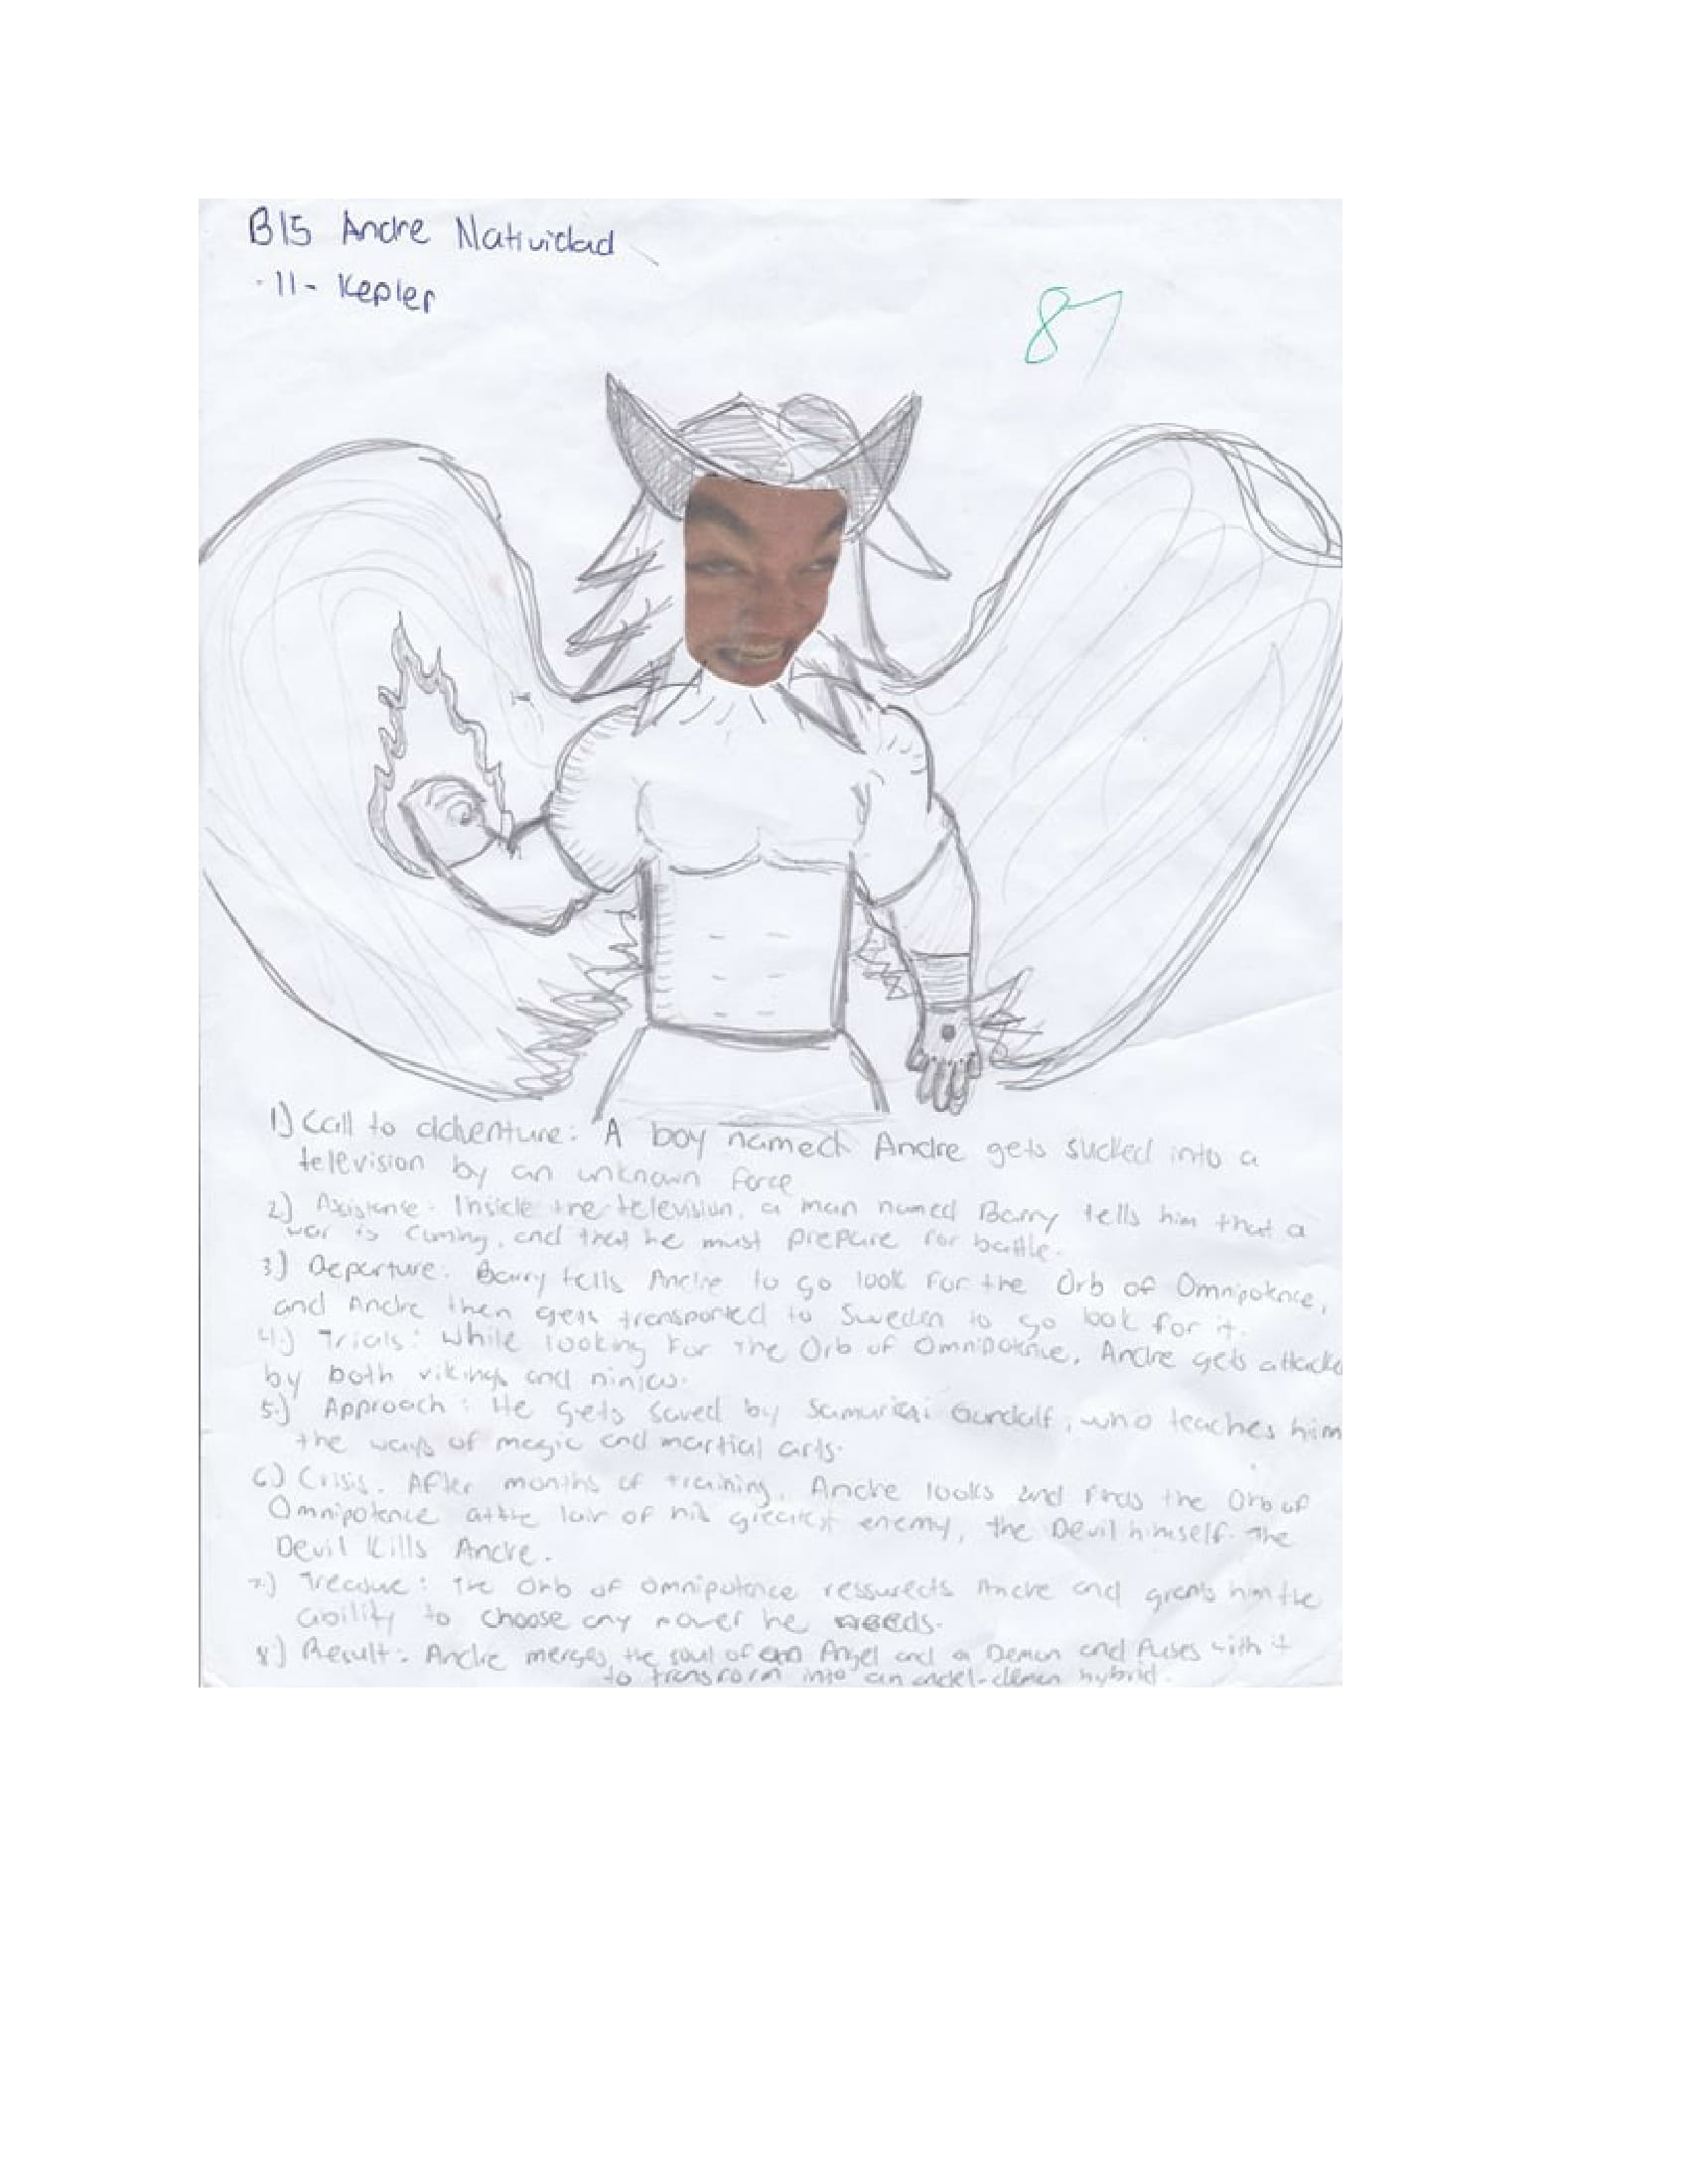 B15 Andre Natividad
11- Kepler
87
1) Call to adventure: A boy named Andre gets sucked into a
television by an unknown force
2.) Assistance: Inside the television, a man named Barry tells him that a
war is coming, and that he must prepare for battle.
3.) Departure: Barry tells Andre to go look for the Orb of Omnipotence,
and Andre then gets transported to Sweden to go look for it.
4.) Trials: While looking for the Orb of Omnipotence, Andre gets attacke
by both vikings and ninjas.
5.) Approach: He gets saved by Gandalf, who teaches him
the ways of magic and martial arts.
6.) Crisis. After months of training, Andre looks and finds the Orb of
Omnipotence at the lair of his greatest enemy, the Devil himself. The
Devil kills Andre.
7.) Treasure: The Orb of Omnipotence ressurects Andre and grants him the
ability to choose any power he needs.
8.) Result: Andre merges the soul of an Angel and a Demon and fuses with it
to transform into an -demon hybrid.